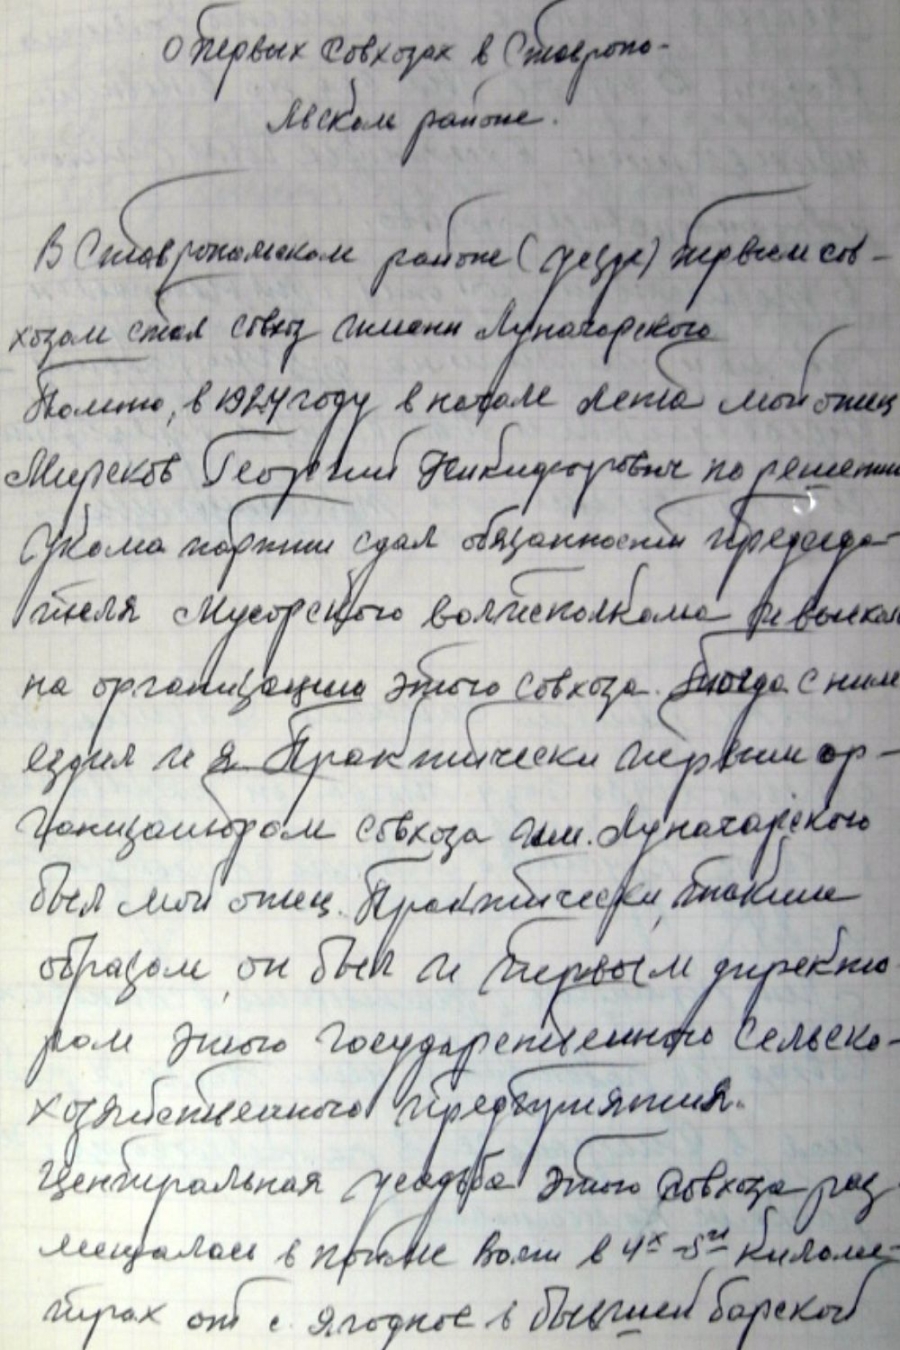 О первых совхозах в Ставропо-
льском районе.
В Ставропольском районе (уезде) первым сов-
хозом стал совхоз имени Луначарского
Помню, в 1924 году в начале лета мой отец
Мурсков Георгий Никифорович по решению
Укома партии сдал обязанности председа-
теля Мусорского волисполкома и выехал
на организацию этого совхоза. Тогда с ним
ездил и я. Практически первым ор-
ганизатором совхоза им. Луначарского
был мой отец. Практически, таким
образом, он был и первым директо-
ром этого государственного сельско-
хозяйственного предприятия.
Центральная усадьба этого совхоза раз
мещалась в пойме Волги в 4х-5и киломе-
трах от с. Ягодное в бывшей барской